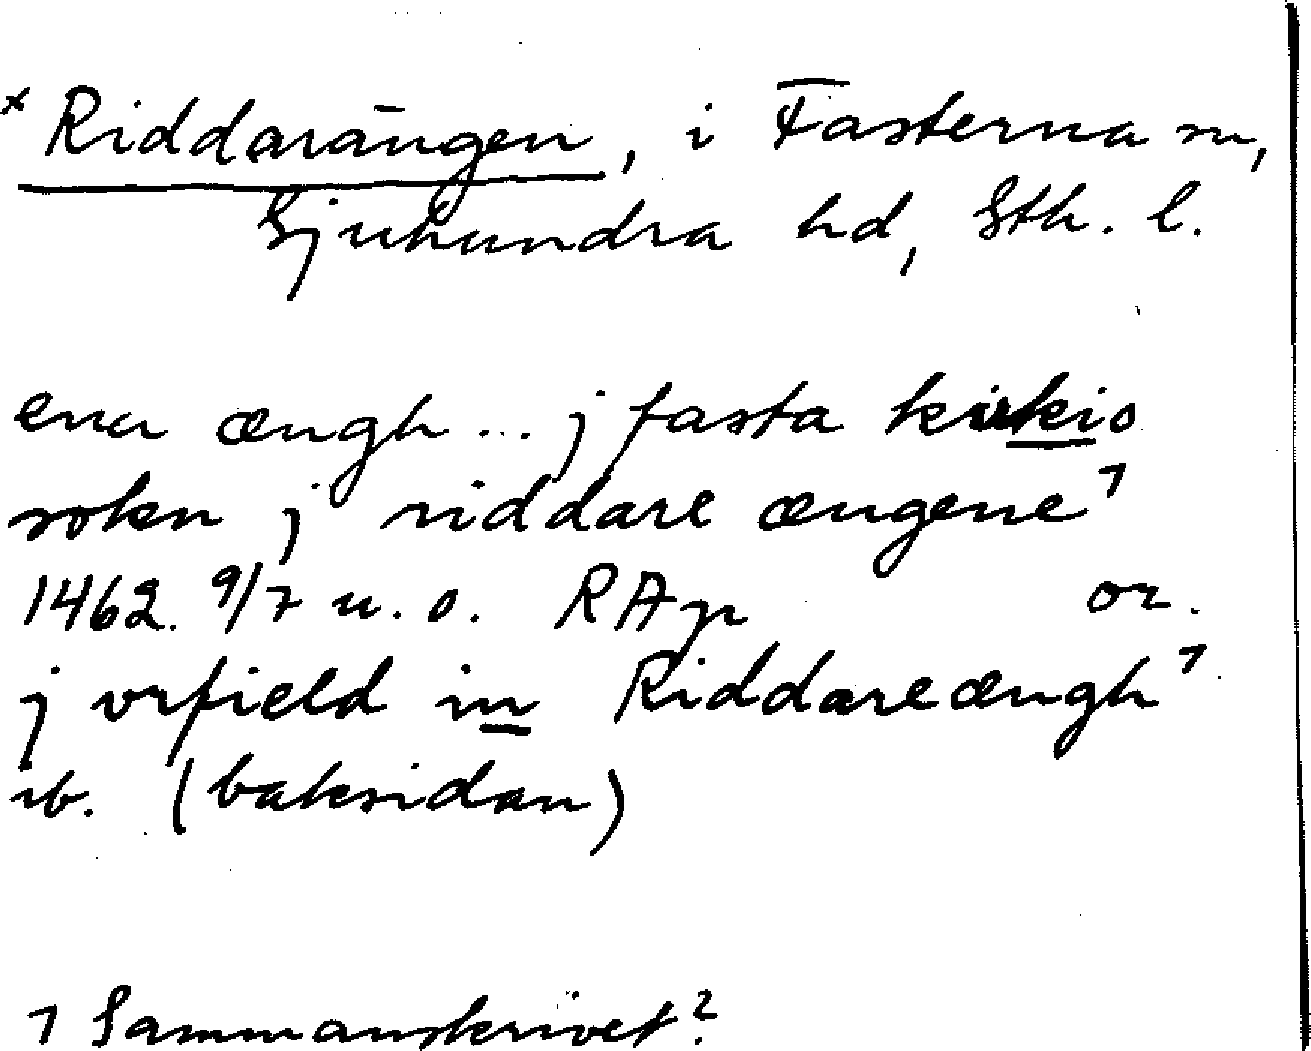 × Riddarängen, i Fasterna sn,
Sjuhundra hd, Sth. l.
ena ængh ... j fasta kirkio
sokn j riddare ængene¹
1462 9/7 u. o. RAp or.
j vrfield in Riddareængh¹
ib. (baksidan)
1 Sammanskrivet?